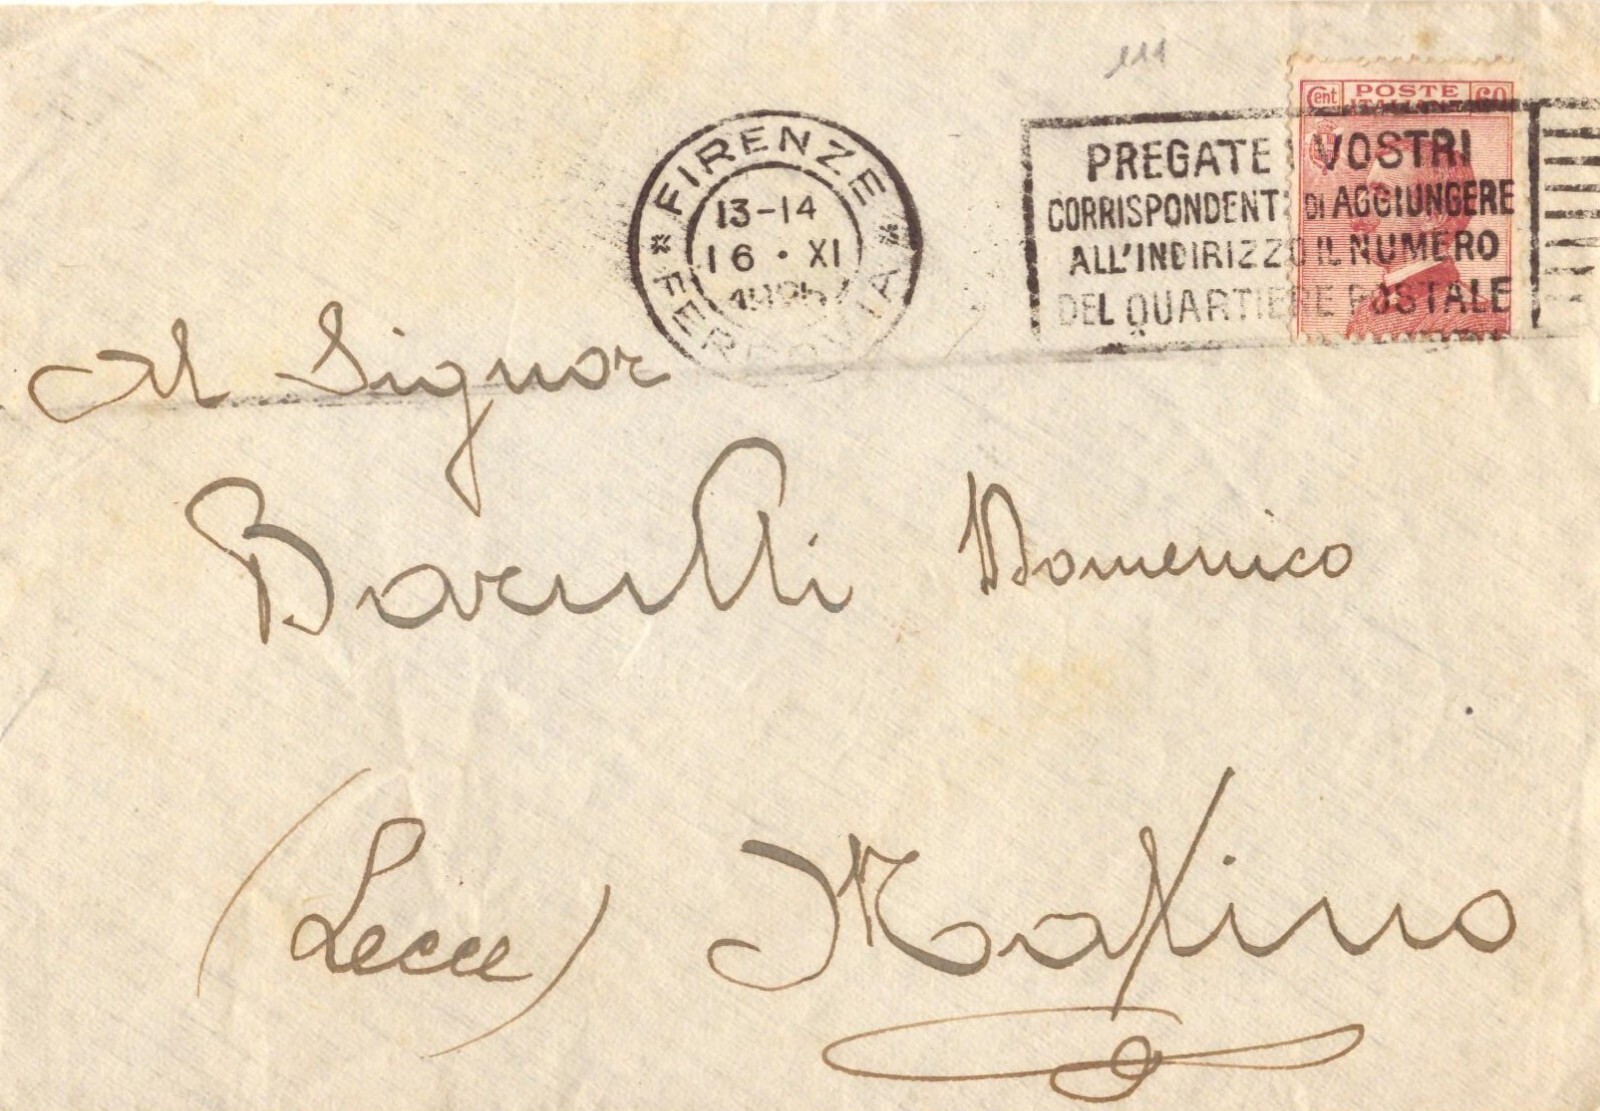 Cent POSTE ITALIANE 60
FIRENZE
FERROVIA
13-14
16 · XI
PREGATE I VOSTRI
CORRISPONDENTI DI AGGIUNGERE
ALL'INDIRIZZO IL NUMERO
DEL QUARTIERE POSTALE
Al Signor
Domenico
(Lecce)